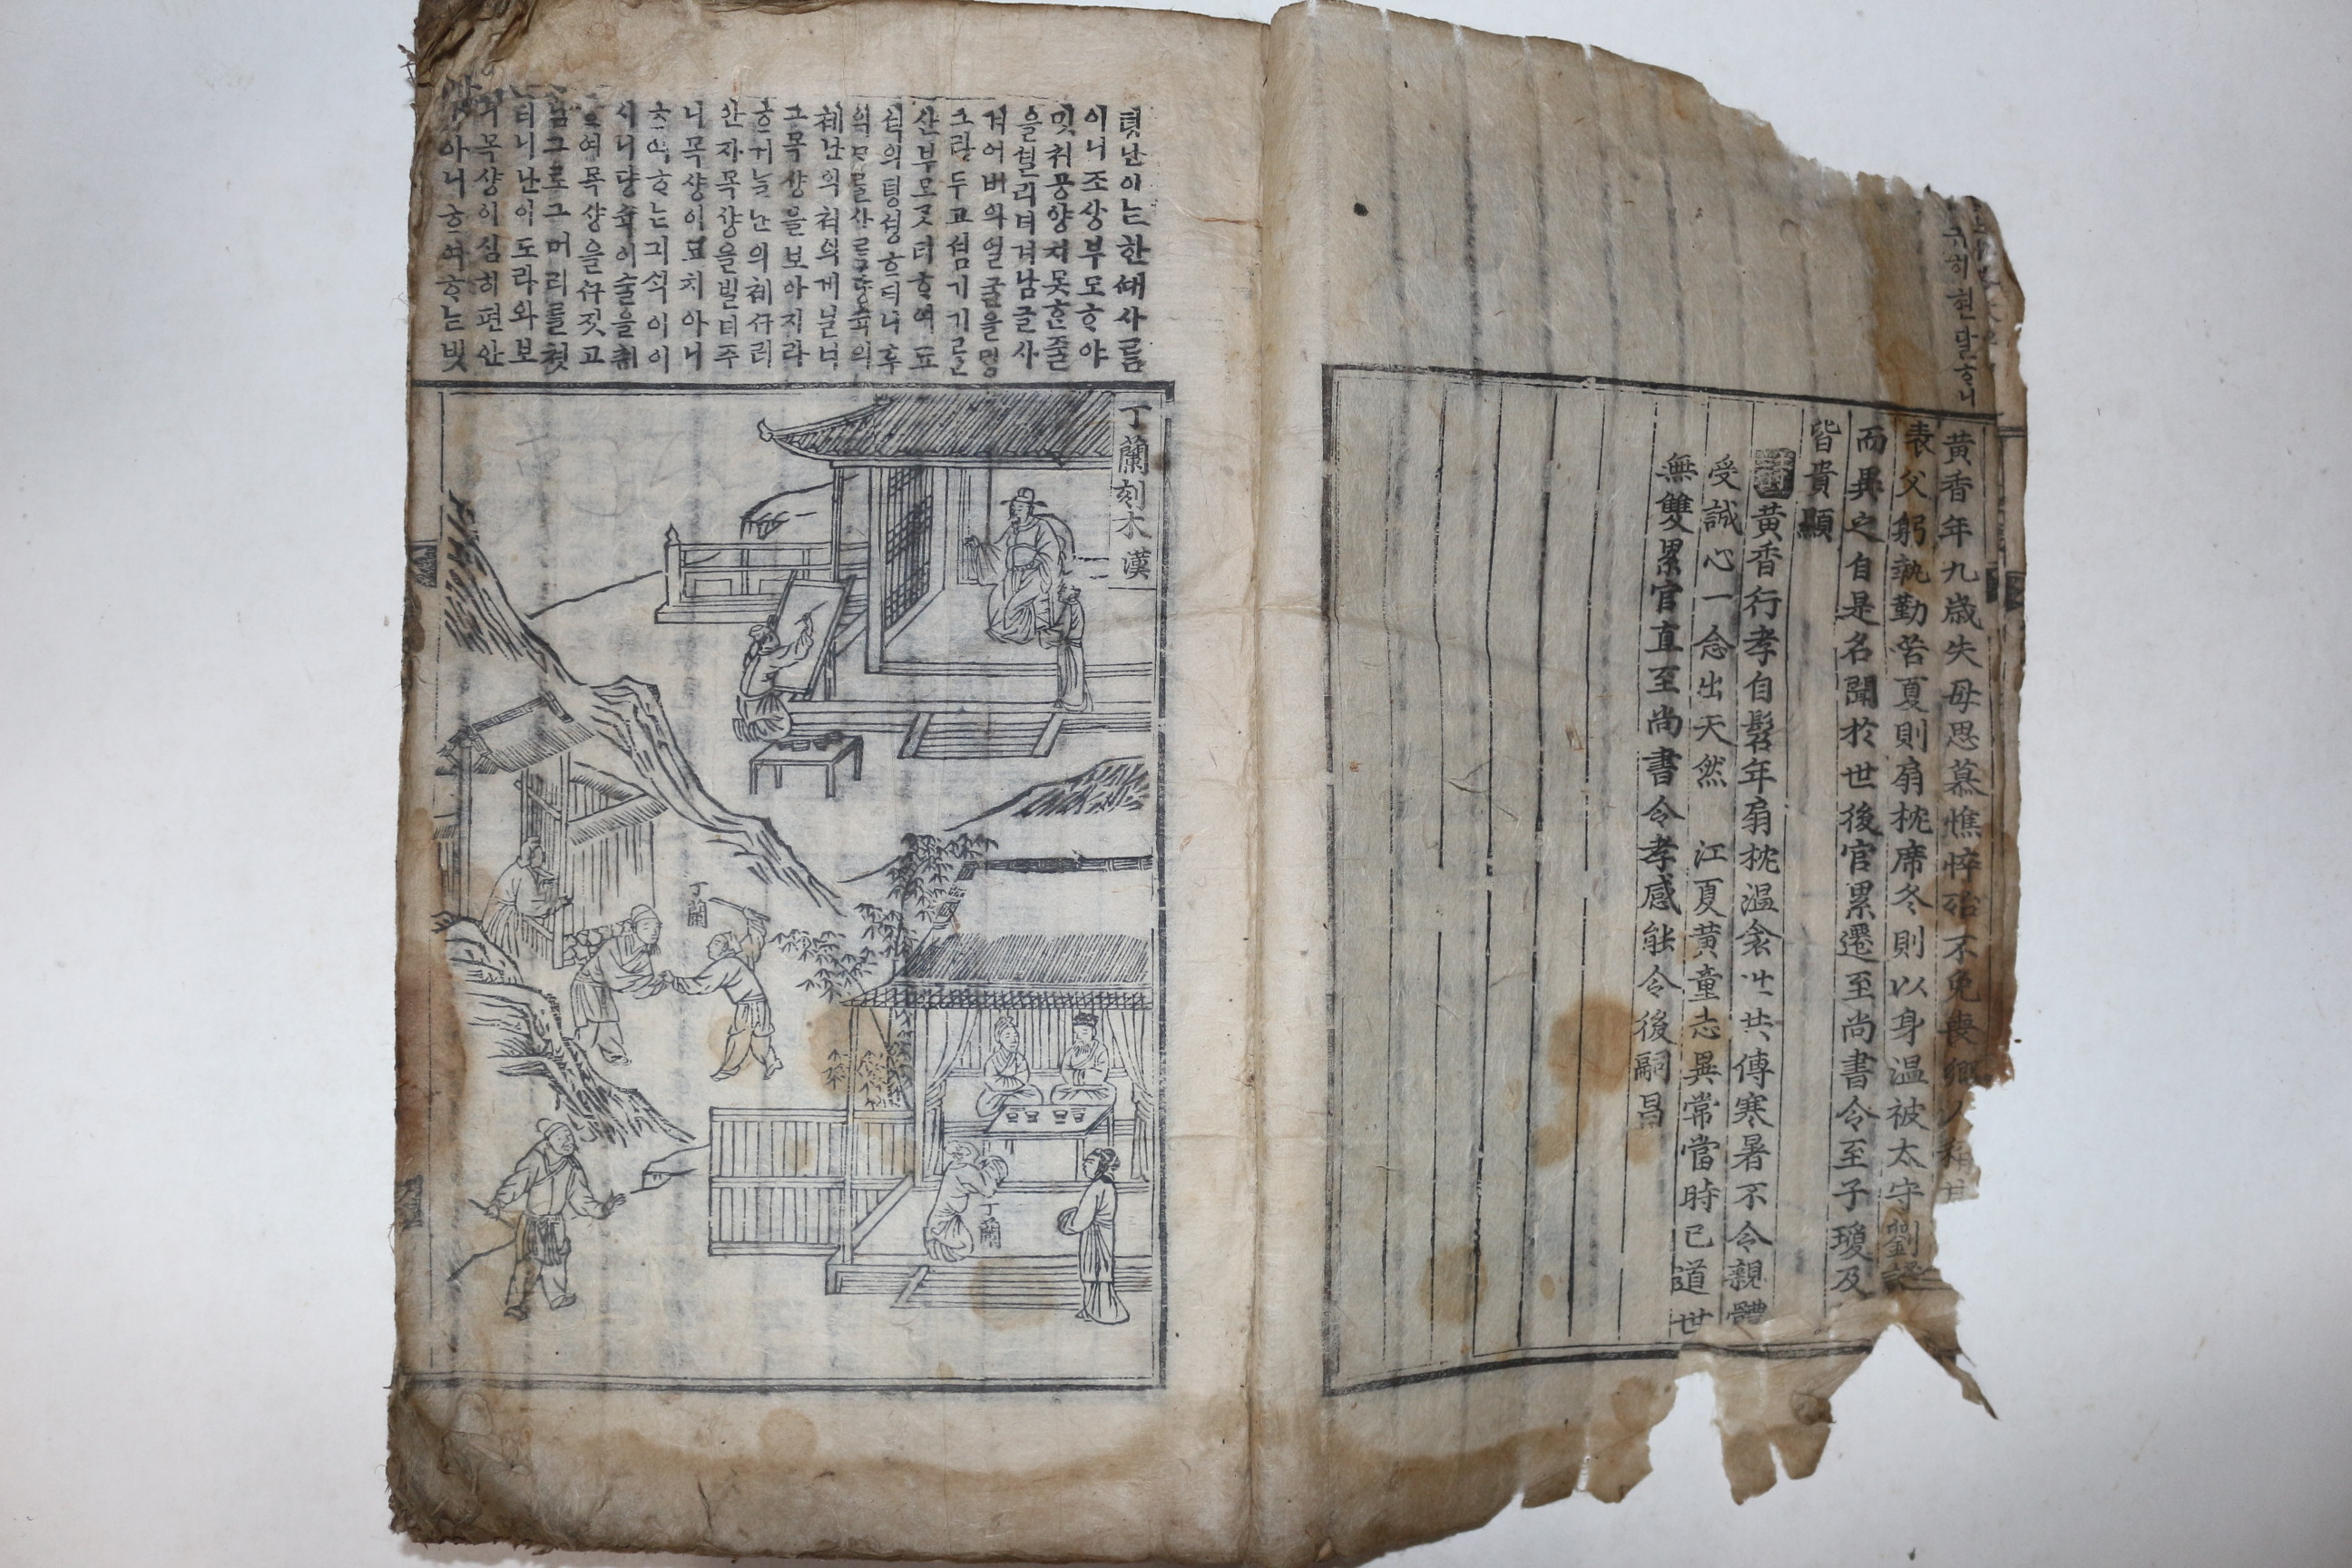 귀히현달ᄒᆞ니
黃香年九歲失母思慕憔悴殆不免喪鄕人稱其
孝父躬執勤苦夏則扇枕席冬則以身温被太守劉護
而異之自是名聞於世後官累遷至尚書令至子瓊及
皆貴顯
詩黃香行孝自髫年扇枕温衾世共傳寒暑不令親體
受誠心一念出天然 江夏黃童志異常當時已道世
無雙累官直至尚書令孝感能令後嗣昌
뎡난이ᄂᆞᆫ한ᄯᅢ사ᄅᆞᆷ
이니조상부모ᄒᆞ야
밋쳐공양치못ᄒᆞᆫ줄
을헐리녀겨남글사
겨어버의얼굴을ᄆᆡᆼ
그라두고셤기기ᄅᆞᆯ
산부모ᄀᆞᆺ티ᄒᆞ여됴
셕의뎡셩ᄒᆞ더니후
의ᄆᆞᄋᆞᆯ사ᄅᆞᆷ댱슉의
쳬난의쳐의게빌녀
그목샹을보아지라
ᄒᆞ거늘난의쳬ᄭᅮ러
안자목샹을빌되주
니목샹이묘치아니
ᄒᆞ여ᄒᆞᄂᆞᆫ긔ᄉᆡᆨ이이
시니댱슉이술을취
ᄒᆞ여목샹을ᄭᅮ짓고
남그로그머리를쳣
더니난이도라와보
니목샹이심히편안
티아니ᄒᆞ여ᄒᆞᄂᆞᆫ빗
丁蘭刻木 漢
丁蘭
丁蘭